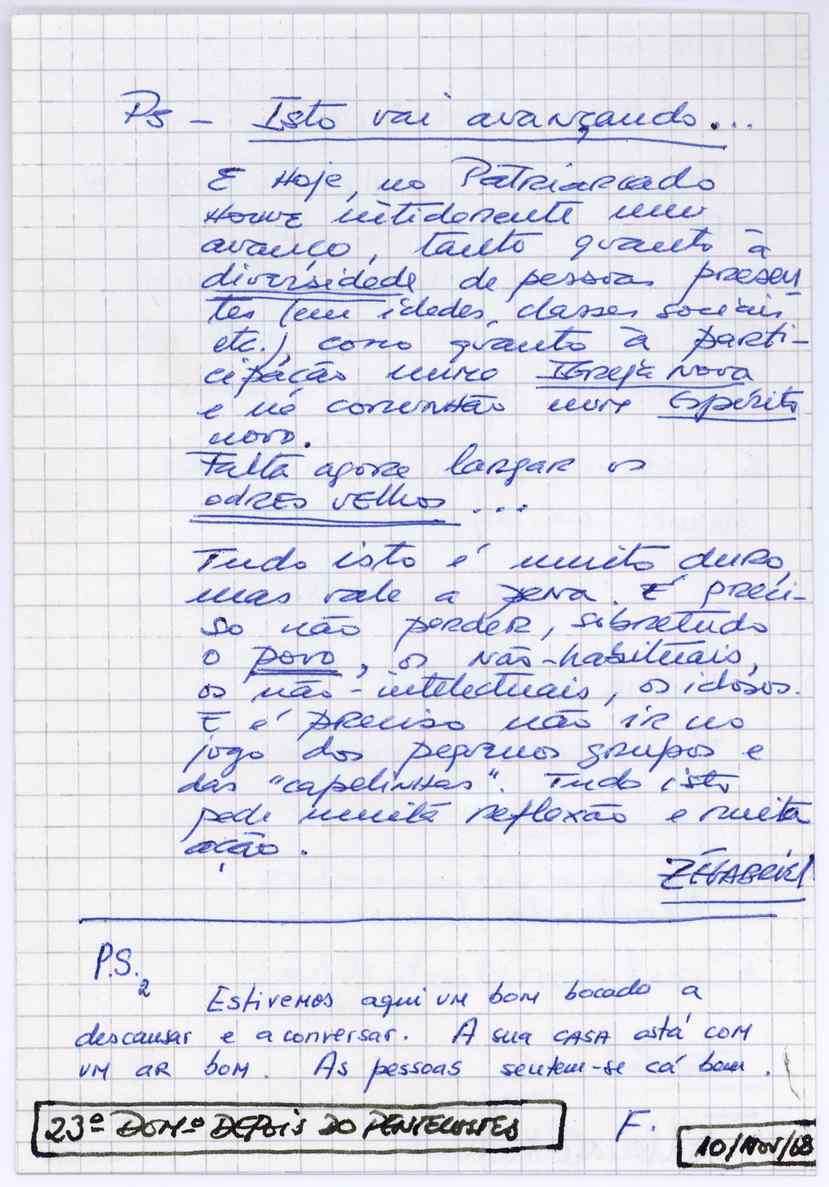 PS - Isto vai avançando...
E Hoje, no Patriarcado
Houve nitidamente um
avanço, tanto quanto à
diversidade de pessoas presen-
tes (em idades, classes sociais
etc.), como quanto à parti-
cipação numa Igreja nova
e na comunhão num Espírito
novo.
Falta agora largar os
odres velhos...
Tudo isto é muito duro,
mas vale a pena. É preci-
so não perder, sobretudo
o povo, os não-habituais,
os não-intelectuais, os idosos.
E é preciso não ir no
jogo dos pequenos grupos e
das "capelinhas". Tudo isto
pede muita reflexão e muita
ação.
ZÉGABRIEL
P.S.2
Estivemos aqui um bom bocado a
descansar e a conversar. A sua CASA está com
um ar bom. As pessoas sentem-se cá bem.
F.
23º DOMº DEPOIS DO PENTECOSTES
10/NOV/68